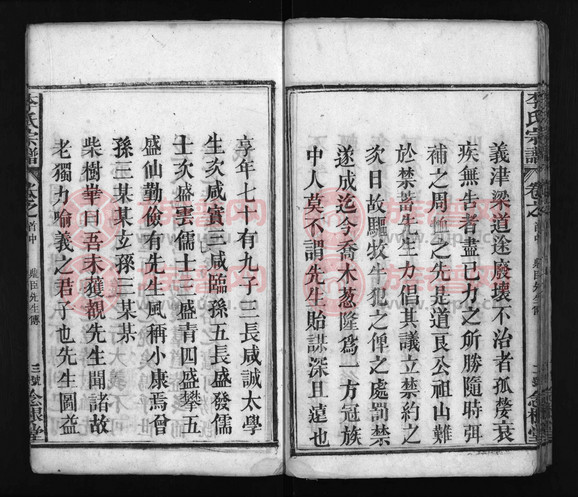 李氏宗譜
卷之
首中
義津梁道途廢壞不治者孤嫠衰
疾無告者盡己力之所勝隨時弭
補之周恤之先是道艮公祖山難
於禁蓄先生力倡其議立禁約之
次日故驅牧牛犯之俾之處罰禁
遂成迄今喬木葱隆為一方冠族
中人莫不謂先生貽謀深且遠也
李氏宗譜
卷之
首中
臣先生傳
三號
享年七十有九子三長咸誠太學
生次咸賓三咸臨孫五長盛發儒
士次盛雲儒士三盛青四盛攀五
盛仙勤儉有先生風稱小康焉曾
孫三某某立孫三某某
柴樹華曰吾未獲覯先生聞諸故
老獨力喻義之君子也先生圖益